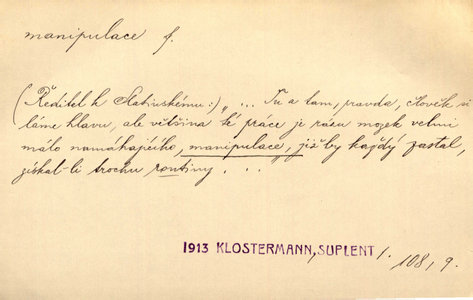 manipulace f.
(Ředitel k Slatinskému:) „... Tu a tam, pravda, člověk si
láme hlavu, ale většina té práce je rázu mozek velmi
málo namáhajícího, manipulace, již by každý zastal,
získal-li trochu routiny ..."
1913 KLOSTERMANN, SUPLENT 1. 108, 9.